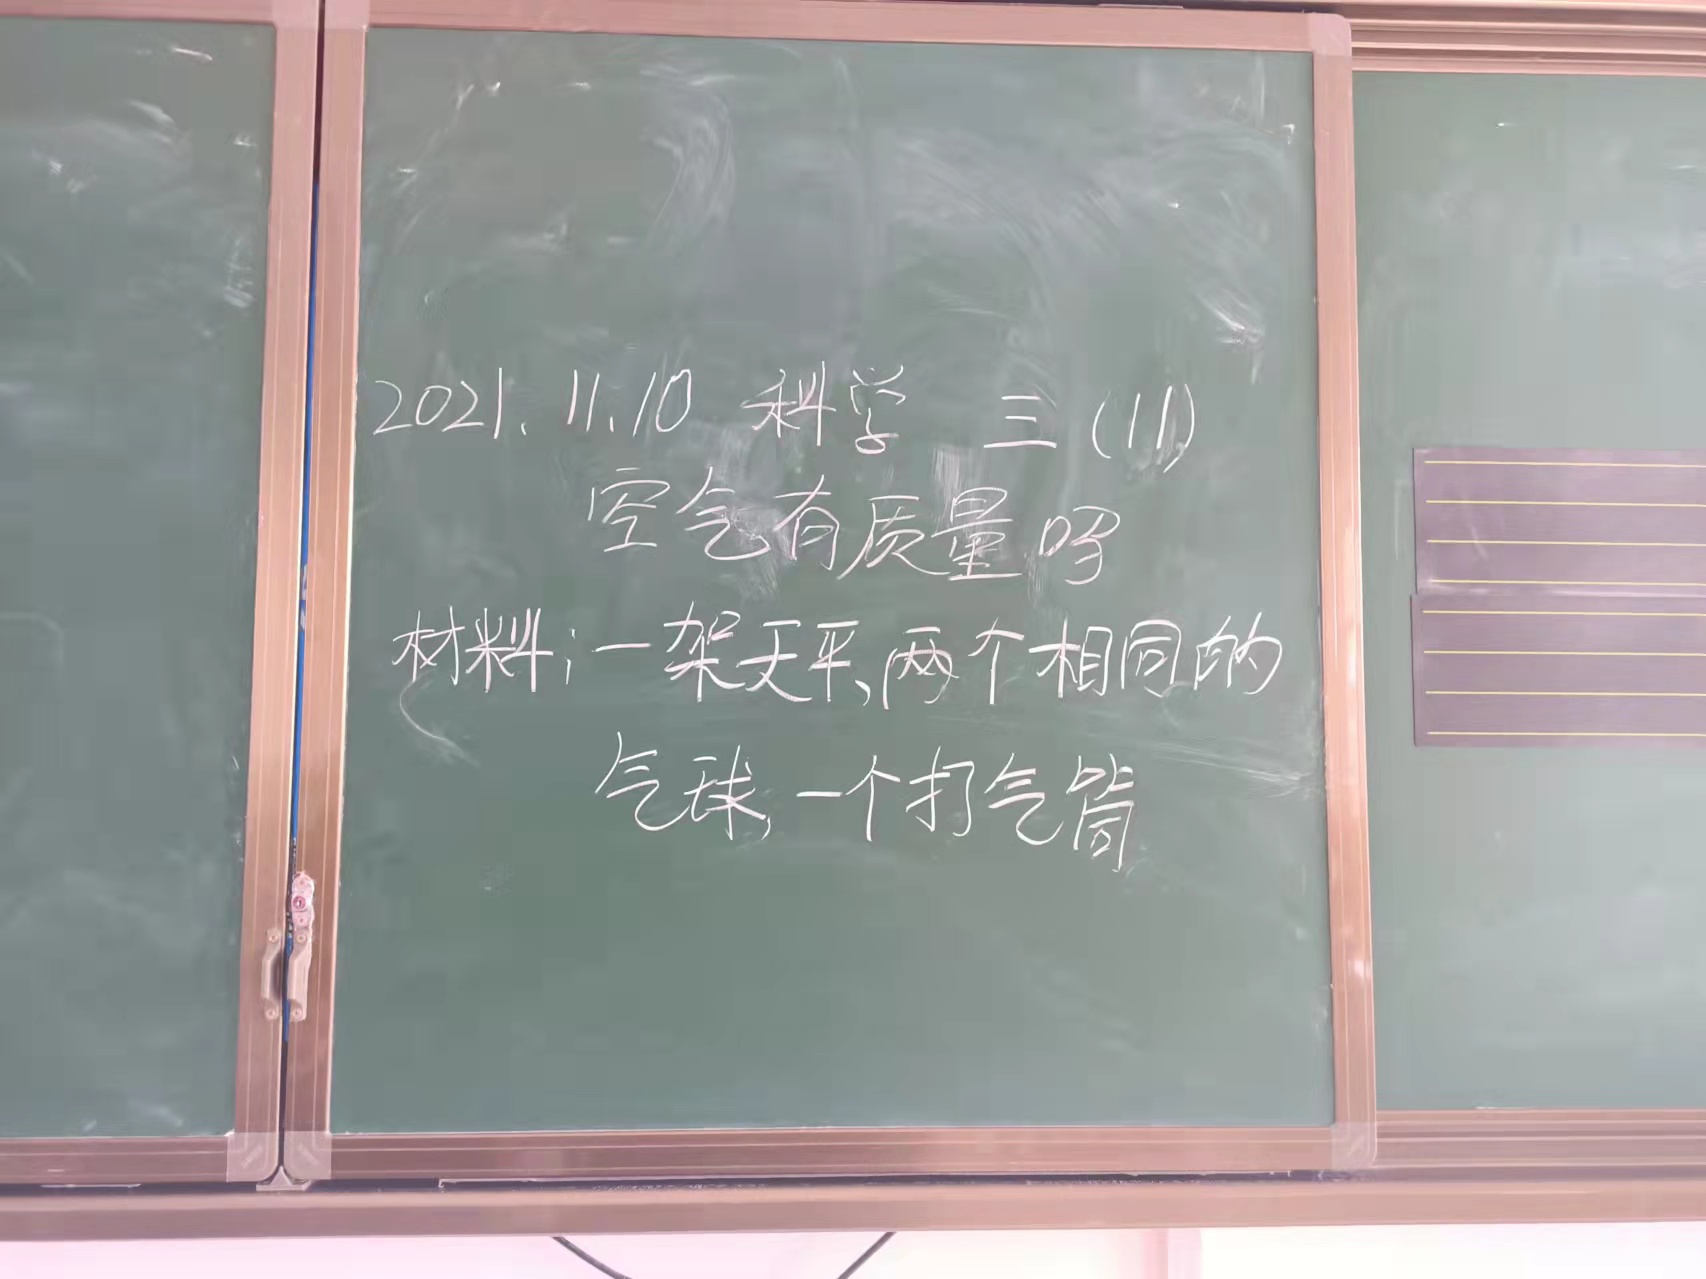 2021.11.10 科学 三(11)
空气有质量吗
材料:一架天平、两个相同的
气球,一个打气筒